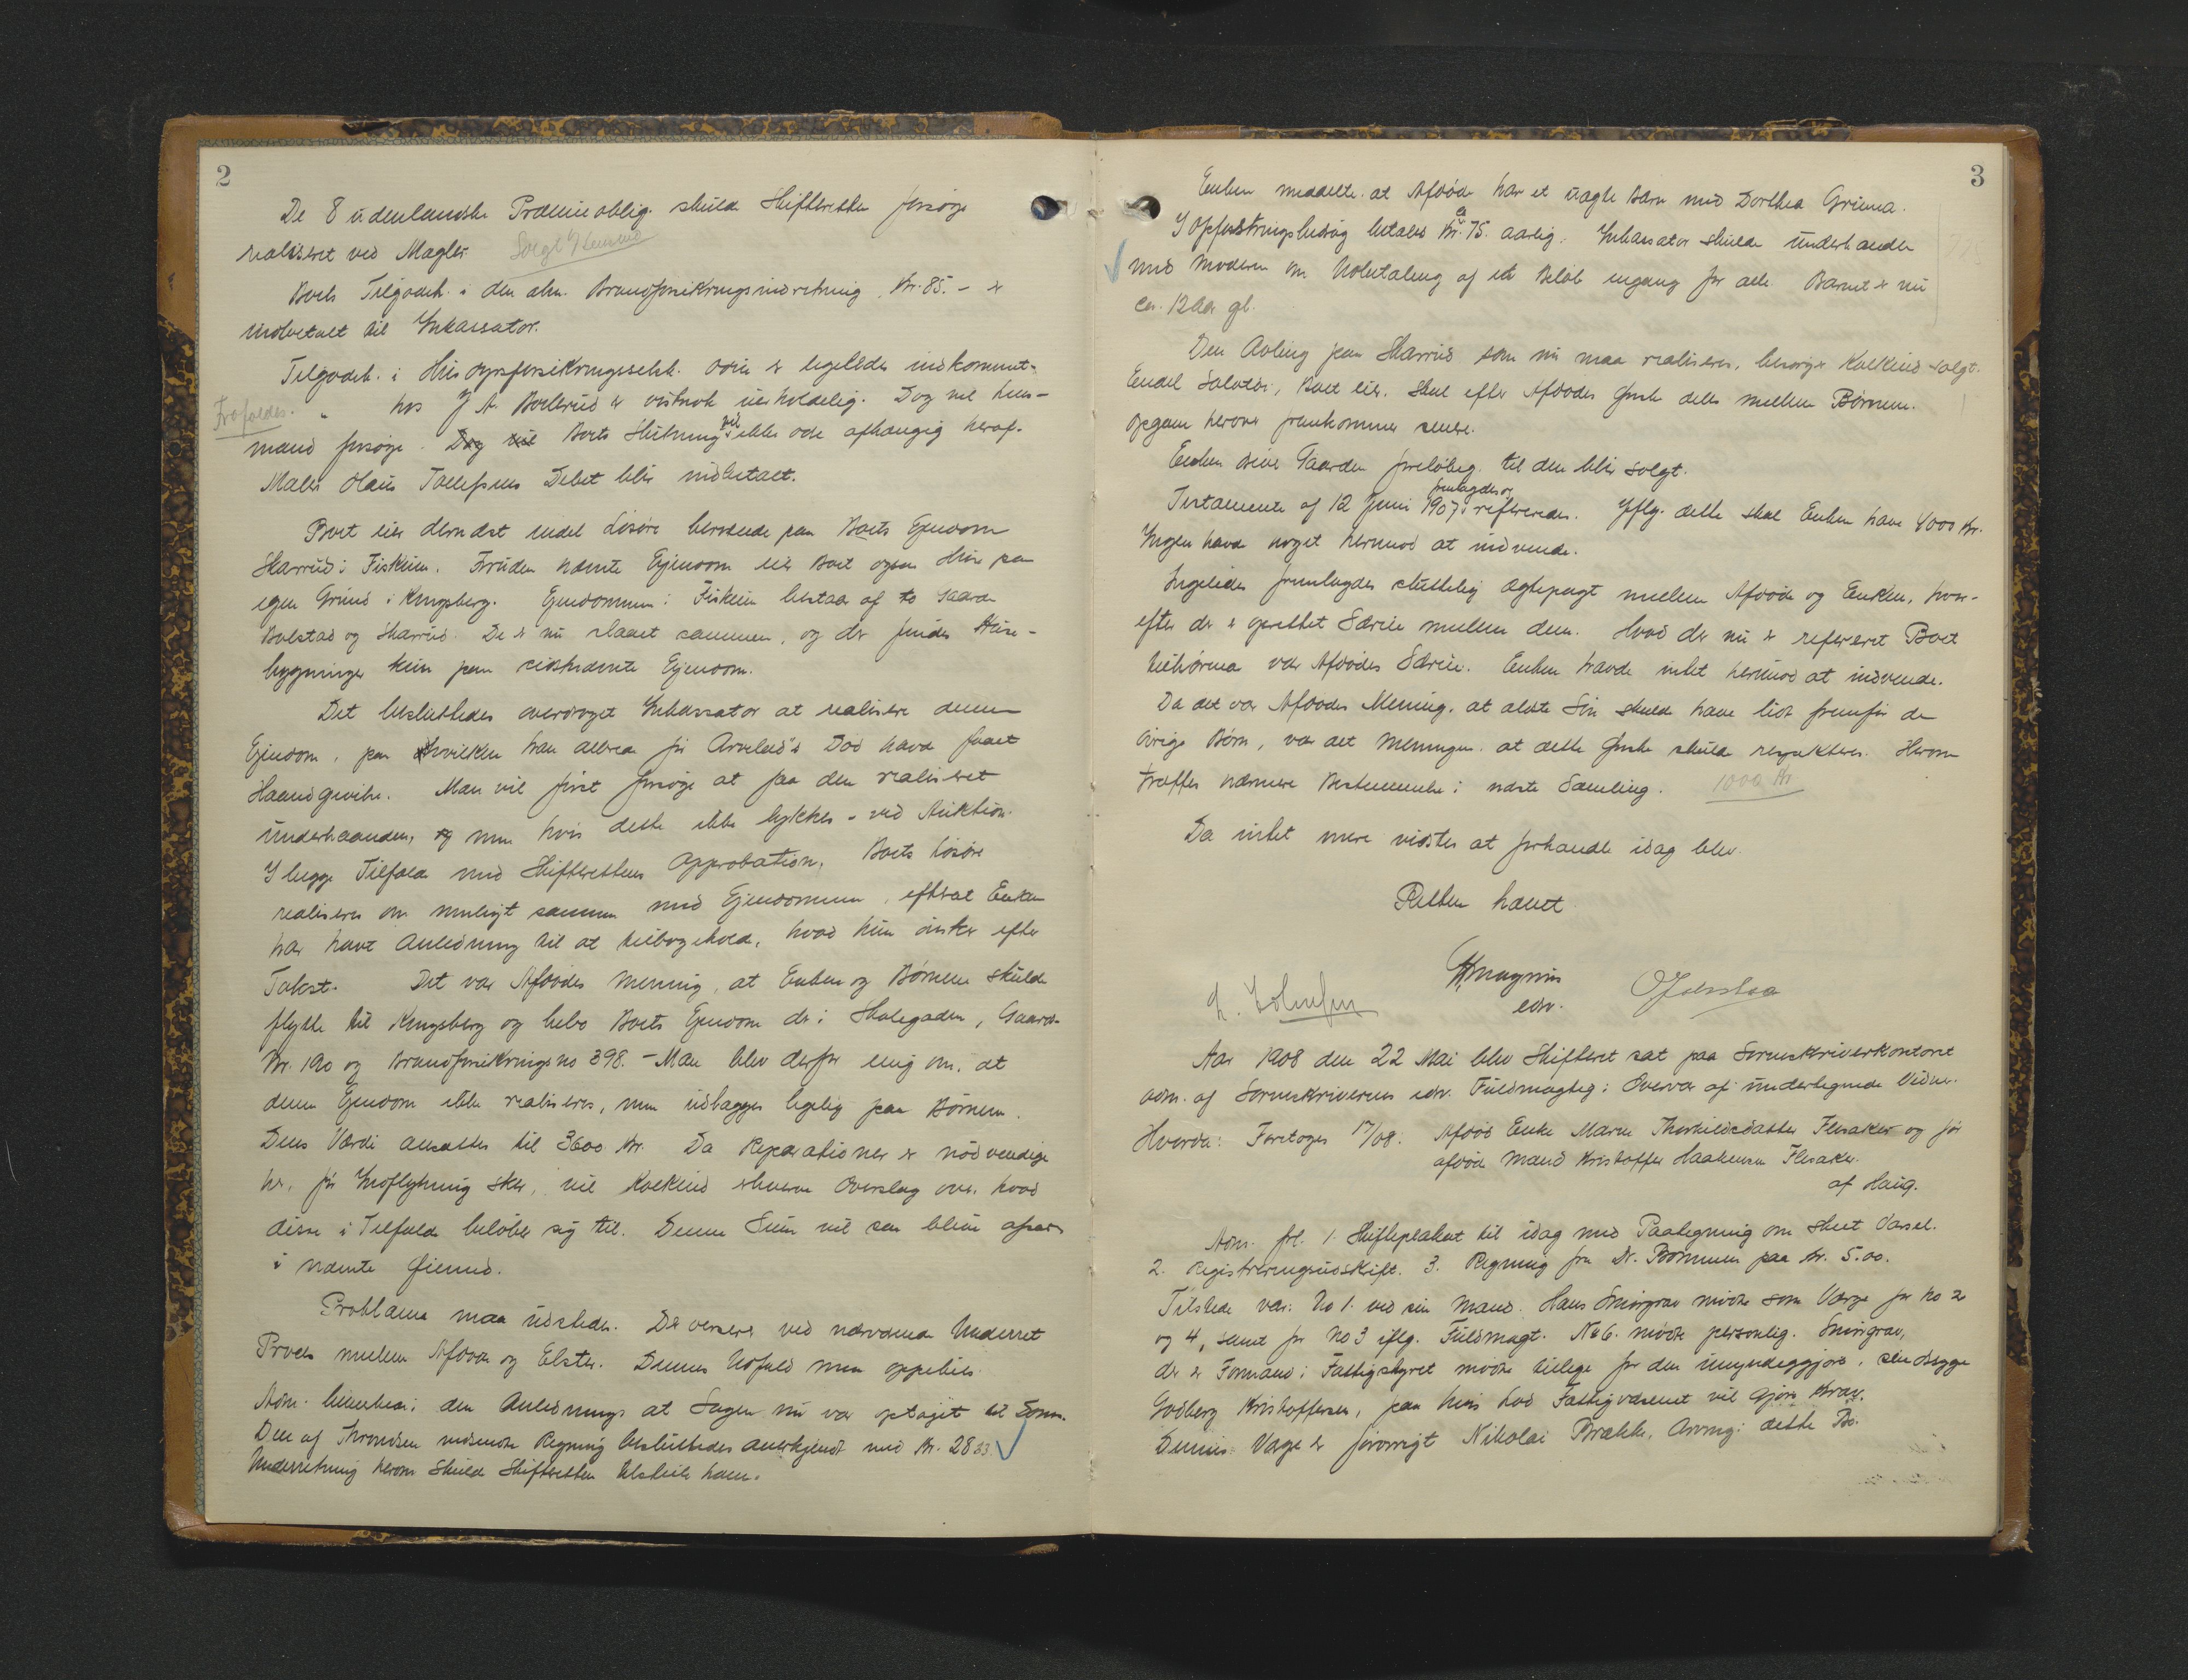 2
De 8 udenlandske Præmieoblig. skulde Skifteretten forsøge
realiseret ved Megler
Boets Tilgodeh. i den alm. Brandforsikringsindretning Kr. 85.- er
indbetalt til Inkassator.
Tilgodeh. i Husdyrforsikringsselsk. er ligeledes indkommet.
Frafaldes. " hos J. A. er vistnok uerholdelig. Dog vil Lens-
mand forsøge. Dog vil Boets Slutning vil ikke afhængig heraf.
Maler Hans Tollefsens Debet blir indbetalt.
Boet eier dernæst endel Løsøre beroende paa Boets Ejendom
Skarrud i Fiskum. Foruden nævnte Ejendom eier Boet ogsaa Hus paa
egen Grund i Kongsberg. Ejendommen i Fiskum bestaar af to Gaarde
Bolstad og Skarrud. De er nu slaaet sammen, og der findes Huse-
bygninger kun paa sidstnævnte Ejendom.
Det besluttedes overdraget Inkassator at realisere denne
Ejendom, paa hvilken han allerede før Arvelad's Død havde faaet
Haandgivelse. Man vil først forsøge at faa den realiseret
underhaanden, og men hvis dette ikke lykkes - ved Auktion.
I begge Tilfælde med Skifterettens Approbation. Boets Løsøre
realiseres om muligt sammen med Ejendommen, efterat Enken
har havt Anledning til at tilbageholde, hvad hun ønsker efter
Takst. Det var Afdødes Mening, at Enken og Børnene skulde
flytte til Kongsberg og bebo Boets Ejendom der i Skolegaden, Gaards
Nr. 190 og Brandforsikringsno 398. - Man blev derfor enig om, at
denne Ejendom ikke realiseres, men udlægges ligelig paa Børnene.
Dens Værdi ansattes til 3600 Kr. Da Reparationer er nødvendige
her, før Indflytning sker, vil Kolkind erhverve Overslag over, hvad
disse i Tilfælde beløber sig til. Denne Sum vil saa blive afsat
i nævnte Øiemed.
Proklama maa udstedes. Der verserer ved nærværende Underret
Proces mellem Afdøde og Elster. Dennes Udfald maa oppebies.
Adm. bemerkede i den Anledning at Sagen nu var optaget til Dom.
Den af Throndsen indsendte Regning besluttedes anerkjendt med Kr. 28.83
Underretning herom skulde Skifteretten tilstille ham.
3
Enken meddelte at Afdøde har et uægte Barn med Dorthea Gruma.
I Opfostringsbidrag betales ca Kr. 75. aarlig. Inkassator skulde underhandle
med Moderen om Udbetaling af et Beløb engang for alle. Barnet er nu
ca. 12 Aar gl.
Den Avling paa Skarrud som nu maa realiseres, besørger Kolkind solgt.
Endel Sølvtøi, Boet eier, skal efter Afdødes Ønske deles mellem Børnene.
Opgave herover fremkommer senere.
Enken driver Gaarden foreløbig til den blir solgt.
Testamente af 12 Juni 1907 fremlagdes og refereredes. Iflg. dette skal Enken have 4000 Kr.
Ingen havde noget hermod at indvende.
Ligeledes fremlagdes Ægtepagt mellem Afdøde og Enken, hvor-
efter der er oprettet Særeie mellem dem. Hvad der nu er refereret Boet
tilhørende var Afdødes Særeie. Enken havde intet hermod at indvende.
Da det var Afdødes Mening, at ældste Søn skulde have lidt fremfor de
øvrige Børn, var det Meningen at dette Ønske skulde respekteres. Herom
træffes nærmere Bestemmelse i næste Samling. 1000 Kr
Da intet mere vidstes at forhandle idag blev
Retten hævet.
Magnus
edsv.
Aar 1908 den 22 Mai blev Skifteret sat paa Sorenskriverkontoret
adm. af Sorenskriverens edsv. Fuldmægtig i Overvær af undertegnede Vidner.
Hvorda: Foretoges 17/08. Afdød Enke Maren Thorkildsdatter Flesaker og før
afdøde Mand Kristoffer Haakensen Flesaker.
af Haug.
Adm. frl. 1. Skifteplakat til idag med Paategning om skeet Varsel.
2. Registreringsudskift. 3. Regning fra Dr. paa Kr. 5.00.
Tilstede var: No 1. ved sin Mand. Hans Smørgrav mødte som Værge for No 2
og 4, samt for No 3 iflg. Fuldmagt. No 6. mødte personlig. Smørgrav,
der er Formand i Fattigstyret mødte tillige for den umyndiggjorte, sindssyge
Godberg Kristoffersen, paa hvis Lod Fattigvæsenet vil gjøre Krav.
Dennes Værge er forøvrigt Nikolai Brække. Arving i dette Bo.